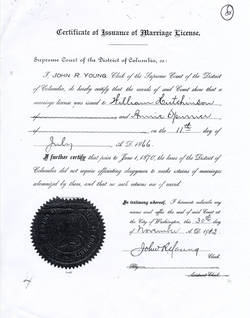 Certificate of Issuance of Marriage License.
Supreme Court of the District of Columbia, ss:
I, JOHN R. YOUNG, Clerk of the Supreme Court of the District
of Columbia, do hereby certify that the records of said Court show that a
marriage license was issued to William Hutchinson
and Annie
on the 11th day of
July A.D. 1866.
I further certify that prior to June 1, 1870, the laws of the District
of Columbia did not require officiating clergymen to make returns of marriages
solemnized by them, and that no such returns are of record.
In testimony whereof, I hereunto subscribe my
name and affix the seal of said Court at the
City of Washington, this 30th day
of November A.D. 1903
John R Young
Clerk.
By
Assistant Clerk.